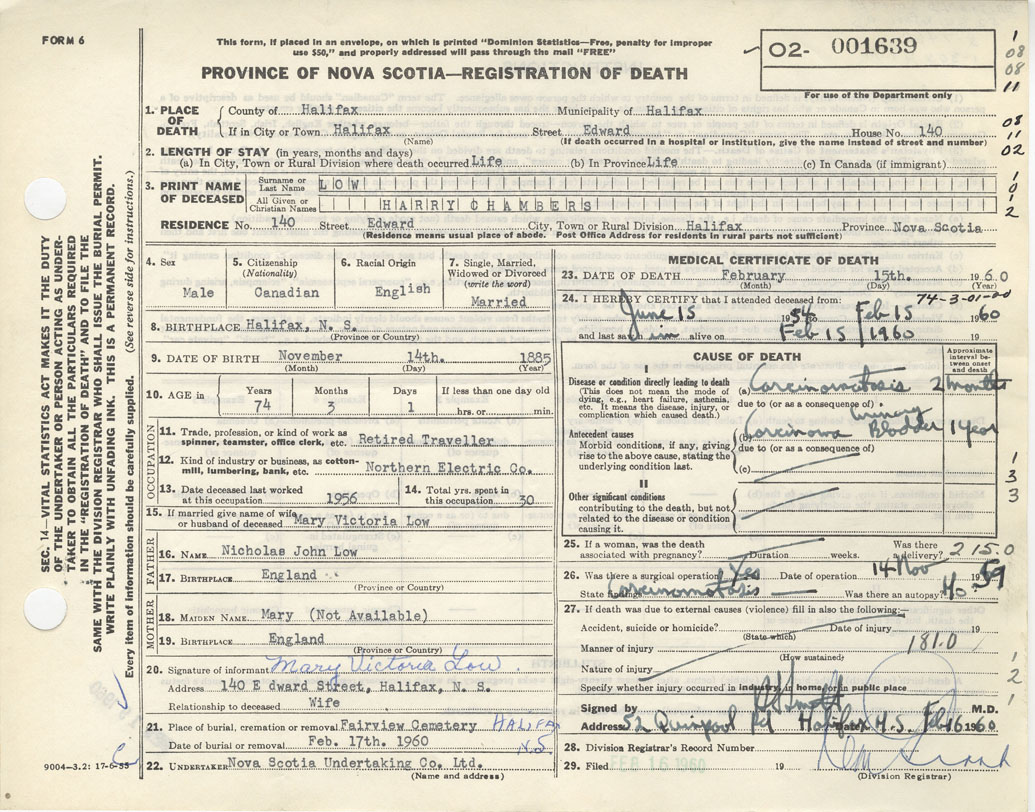 FORM 6
This form, if placed in an envelope, on which is printed "Dominion Statistics—Free, penalty for improper
use $50," and properly addressed will pass through the mail "FREE"
02- 001639
PROVINCE OF NOVA SCOTIA—REGISTRATION OF DEATH
For use of the Department only
1
08
08
11
08
11
02
1. PLACE OF DEATH County of Halifax Municipality of Halifax
If in City or Town Halifax Street Edward House No. 140
(Name) (If death occurred in a hospital or institution, give the name instead of street and number)
2. LENGTH OF STAY (in years, months and days)
(a) In City, Town or Rural Division where death occurred Life (b) In Province Life (c) In Canada (if immigrant)
3. PRINT NAME OF DECEASED Surname or Last Name LOW
All Given or Christian Names HARRY CHAMBERS
1
0
1
2
RESIDENCE No. 140 Street Edward City, Town or Rural Division Halifax Province Nova Scotia
(Residence means usual place of abode. Post Office Address for residents in rural parts not sufficient)
SEC. 14—VITAL STATISTICS ACT MAKES IT THE DUTY
OF THE UNDERTAKER OR PERSON ACTING AS UNDER-
TAKER TO OBTAIN ALL THE PARTICULARS REQUIRED
IN THE "REGISTRATION OF DEATH" AND TO FILE THE
SAME WITH THE DIVISION REGISTRAR WHO SHALL ISSUE THE BURIAL PERMIT.
WRITE PLAINLY WITH UNFADING INK. THIS IS A PERMANENT RECORD.
Every item of information should be carefully supplied. (See reverse side for instructions.)
4. Sex
Male
5. Citizenship
(Nationality)
Canadian
6. Racial Origin
English
7. Single, Married,
Widowed or Divorced
(write the word)
Married
8. BIRTHPLACE Halifax, N. S.
(Province or Country)
9. DATE OF BIRTH November 14th. 1885
(Month) (Day) (Year)
10. AGE in Years Months Days If less than one day old
74 3 1 hrs. or min.
OCCUPATION
11. Trade, profession, or kind of work as
spinner, teamster, office clerk, etc. Retired Traveller
12. Kind of industry or business, as cotton-
mill, lumbering, bank, etc. Northern Electric Co.
13. Date deceased last worked
at this occupation 1956
14. Total yrs. spent in
this occupation 30
15. If married give name of wife
or husband of deceased Mary Victoria Low
FATHER
16. NAME Nicholas John Low
17. BIRTHPLACE England
(Province or Country)
MOTHER
18. MAIDEN NAME Mary (Not Available)
19. BIRTHPLACE England
(Province or Country)
20. Signature of informant Mary Victoria Low
Address 140 E dward Street, Halifax, N. S.
Relationship to deceased Wife
21. Place of burial, cremation or removal Fairview Cemetery HALIFAX
Date of burial or removal Feb. 17th. 1960 N.S
22. UNDERTAKER Nova Scotia Undertaking Co. Ltd.
(Name and address)
9004—3.2: 17-6-55
MEDICAL CERTIFICATE OF DEATH
23. DATE OF DEATH February 15th. 1960
(Month) (Day)
74-3-01-00
24. I HEREBY CERTIFY that I attended deceased from:
June 15 1956 Feb 15 1960
and last saw him alive on Feb 15 1960 19
CAUSE OF DEATH
Approximate
interval be-
tween onset
and death
I
Disease or condition directly leading to death
(This does not mean the mode of
dying, e.g., heart failure, asthenia,
etc. It means the disease, injury, or
complication which caused death.)
(a) Carcinomatosis 2 months
due to (or as a consequence of)
Antecedent causes
Morbid conditions, if any, giving
rise to the above cause, stating the
underlying condition last.
(b) Carcinoma urinary Bladder 1 year
due to (or as a consequence of)
(c)
II
Other significant conditions
contributing to the death, but not
related to the disease or condition
causing it.
1
3
3
25. If a woman, was the death
associated with pregnancy? Duration weeks. Was there
a delivery? 215.0
26. Was there a surgical operation Yes Date of operation 14 Nov 1959
State findings Carcinomatosis Was there an autopsy? No
27. If death was due to external causes (violence) fill in also the following:—
Accident, suicide or homicide? Date of injury 19
(State which)
Manner of injury 181.0
(How sustained)
Nature of injury
Specify whether injury occurred in industry, in home, or in public place
1
2
1
Signed by M.D.
Address 52 Quinpool Rd Halifax N.S. Date Feb 16 1960
28. Division Registrar's Record Number
29. Filed FEB 16 1960 19
(Division Registrar)